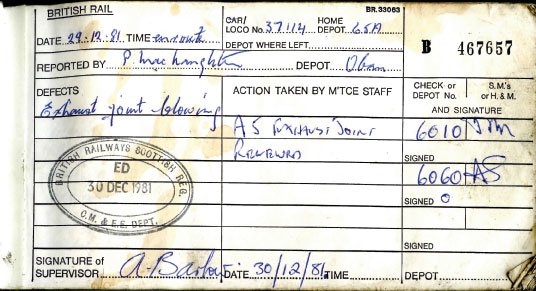 BRITISH RAIL
BR.33063
DATE 29.12.81 TIME enroute
CAR/ LOCO No. 37114
HOME DEPOT 65A
DEPOT WHERE LEFT
B 467657
REPORTED BY P. MacNaughton DEPOT Oban
DEFECTS
Exhaust joint blowing
ACTION TAKEN BY M'TCE STAFF
A5 EXHAUST JOINT
RENEWED
CHECK or DEPOT No.
S.M's or H.& M.
AND SIGNATURE
6010
SIGNED
6060 AS
SIGNED
SIGNED
BRITISH RAILWAYS SCOTTISH REG.
ED
30 DEC 1981
C.M. & E.E. DEPT.
SIGNATURE of SUPERVISOR A. DATE 30/12/81 TIME DEPOT